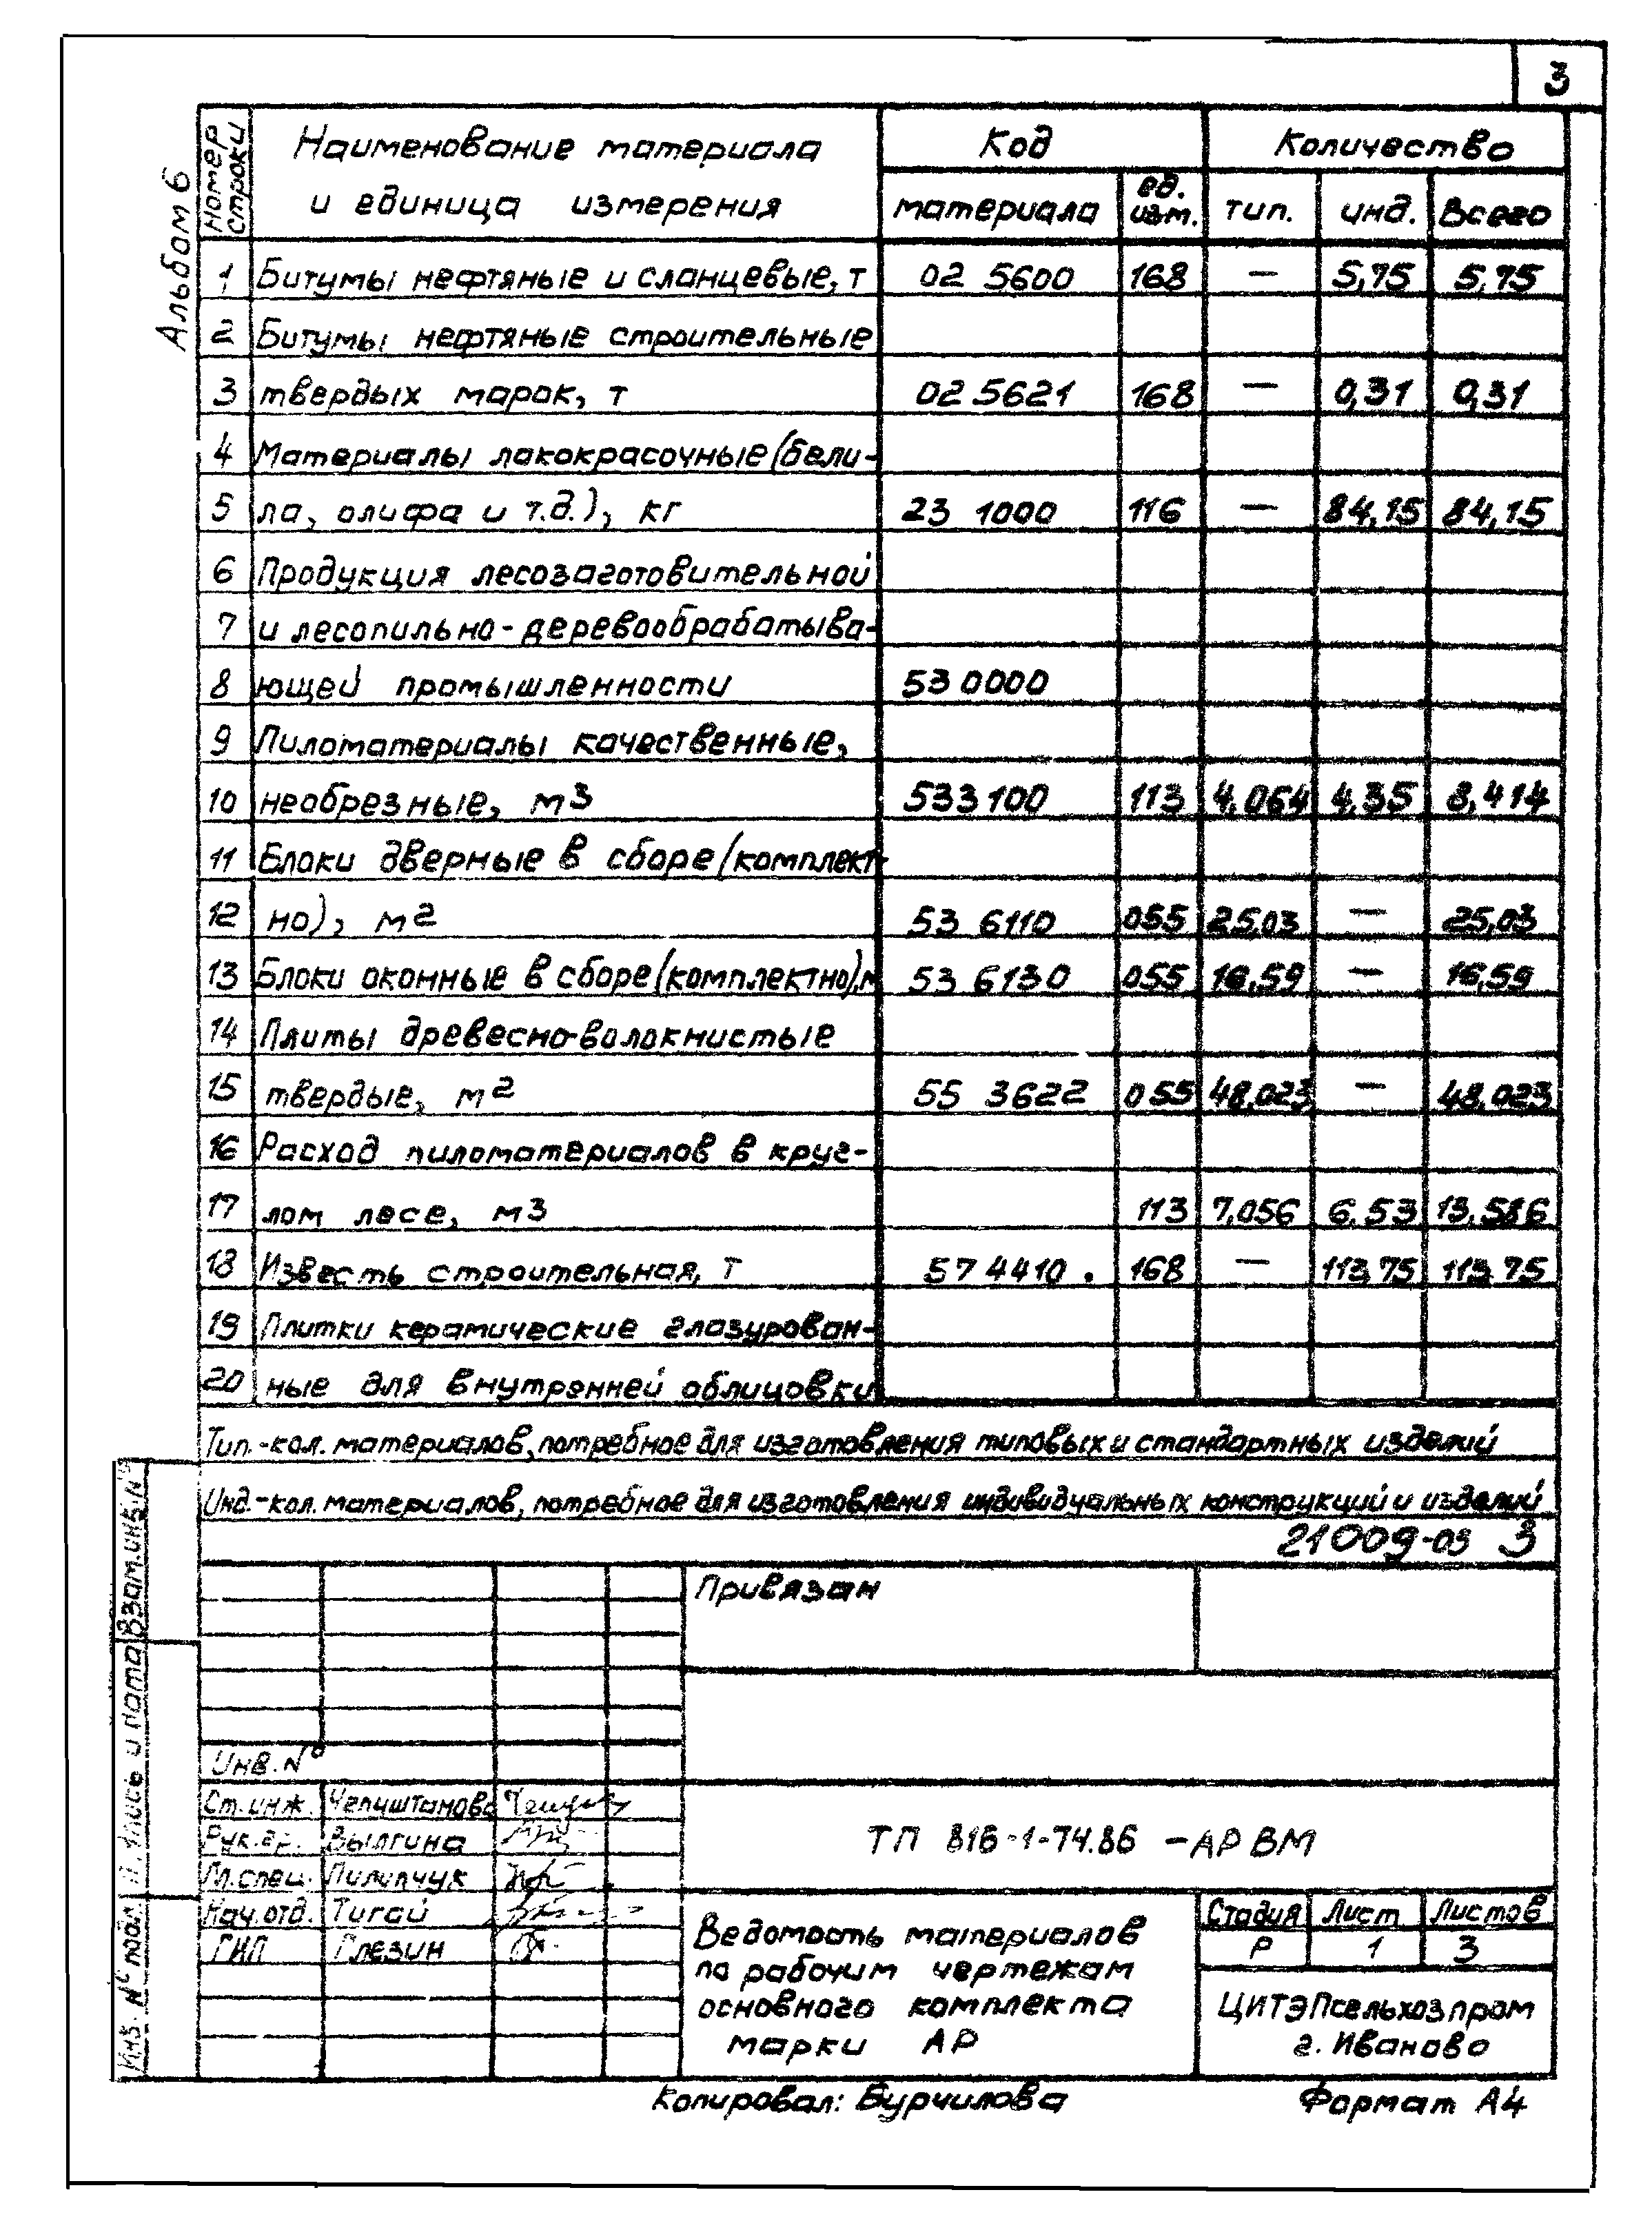 3
Альбом 6
Номер строки
Наименование материала
и единица измерения
Код
Количество
материала
ед. изм.
тип.
инд.
Всего
1 Битумы нефтяные и сланцевые, т 02 5600 168 — 5,75 5,75
2 Битумы нефтяные строительные
3 твердых марок, т 02 5621 168 — 0,31 0,31
4 Материалы лакокрасочные (бели-
5 ла, олифа и т.д.), кг 23 1000 116 — 84,15 84,15
6 Продукция лесозаготовительной
7 и лесопильно-деревообрабатыва-
8 ющей промышленности 53 0000
9 Пиломатериалы качественные,
10 необрезные, м3 533100 113 4,064 4,35 8,414
11 Блоки дверные в сборе (комплект-
12 но), м2 53 6110 055 25,03 — 25,03
13 Блоки оконные в сборе (комплектно), м 53 6130 055 16,59 — 16,59
14 Плиты древесно-волокнистые
15 твердые, м2 55 3622 055 48,023 — 48,023
16 Расход пиломатериалов в круг-
17 лом лесе, м3 113 7,056 6,53 13,586
18 Известь строительная, т 57 4410. 168 — 113,75 113,75
19 Плитки керамические глазурован-
20 ные для внутренней облицовки
Тип.-кол. материалов, потребное для изготовления типовых и стандартных изделий
Инд.-кол. материалов, потребное для изготовления индивидуальных конструкций и изделий
21009-03 3
Привязан
Инв. №
Ст. инж. Чепуштанова
Рук. гр. Вылгина
Гл. спец. Пилипчук
Нач. отд. Тигай
ГИП Глезин
ТП 816-1-74.86 -АР ВМ
Ведомость материалов
по рабочим чертежам
основного комплекта
марки АР
Стадия Лист Листов
Р 1 3
ЦИТЭПсельхозпром
г. Иваново
Взам. инв. №
и дата
Инв. № подл
Копировал: Бурчилова
Формат А4